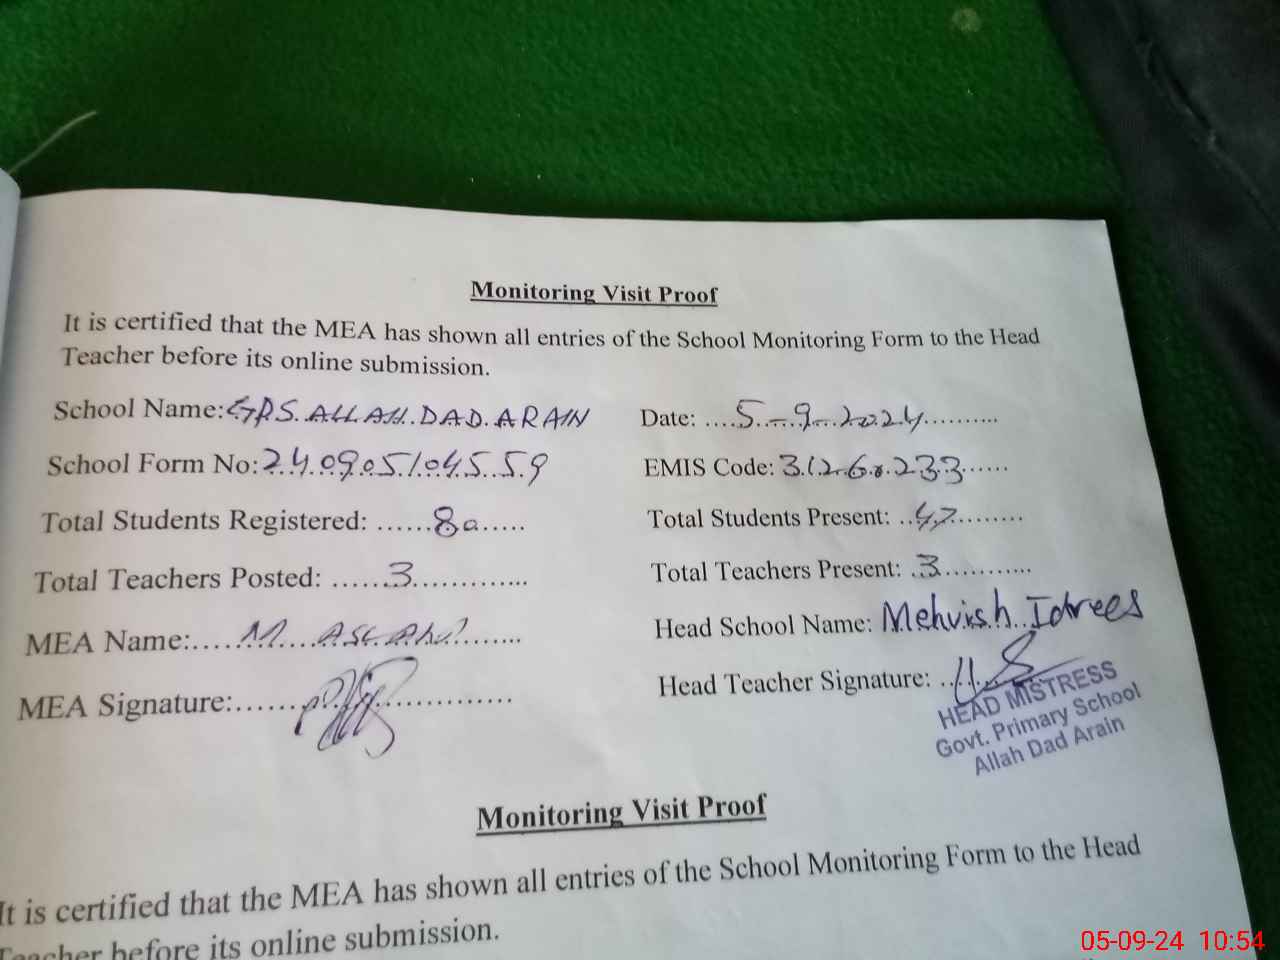 Monitoring Visit Proof
It is certified that the MEA has shown all entries of the School Monitoring Form to the Head
Teacher before its online submission.
School Name: GPS.ALLAH.DAD.ARAIN
Date: ....5-9-2024..........
School Form No: 240905104559
EMIS Code: 31260233......
Total Students Registered: ......80.....
Total Students Present: ..47.........
Total Teachers Posted: ......3............
Total Teachers Present: ..3...........
MEA Name:.....M....
Head School Name: Mehvish Idrees
MEA Signature:.......
Head Teacher Signature: ..
HEAD MISTRESS
Govt. Primary School
Allah Dad Arain
Monitoring Visit Proof
It is certified that the MEA has shown all entries of the School Monitoring Form to the Head
Teacher before its online submission.
05-09-24 10:54